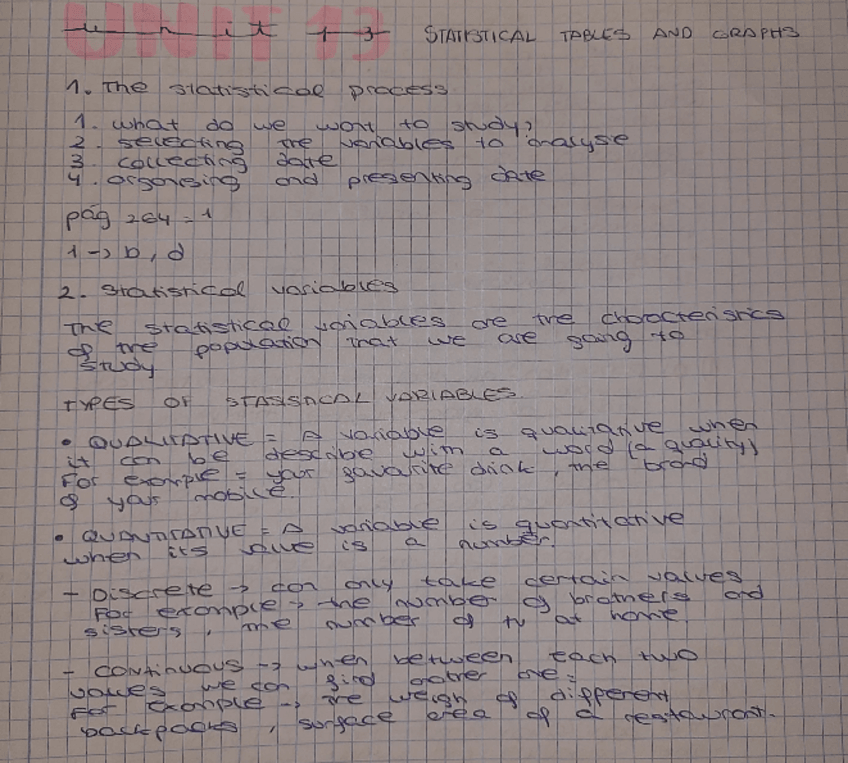 unit 13 STATISTICAL TABLES AND GRAPHS
1. The statistical process
1. what do we want to study?
2. selecting the variables to analyse
3. collecting date
4. organising and presenting date
pág 264 = 1
1 -> b, d
2. Statistical variables
The statistical variables are the characteristics
of the population that we are going to
study
TYPES OF STATISTICAL VARIABLES
• QUALITATIVE = A variable is qualitative when
it can be describe with a word (a quality)
For example = your favourite drink, the brand
of your mobile.
• QUANTITATIVE = A variable is quantitative
when its value is a number.
- Discrete -> can only take certain values
For example -> the number of brothers and
sisters, the number of tv at home
- continuous -> when between each two
values we can find other one =
For example -> the weigh of different
backpacks, surface area of a restaurant.